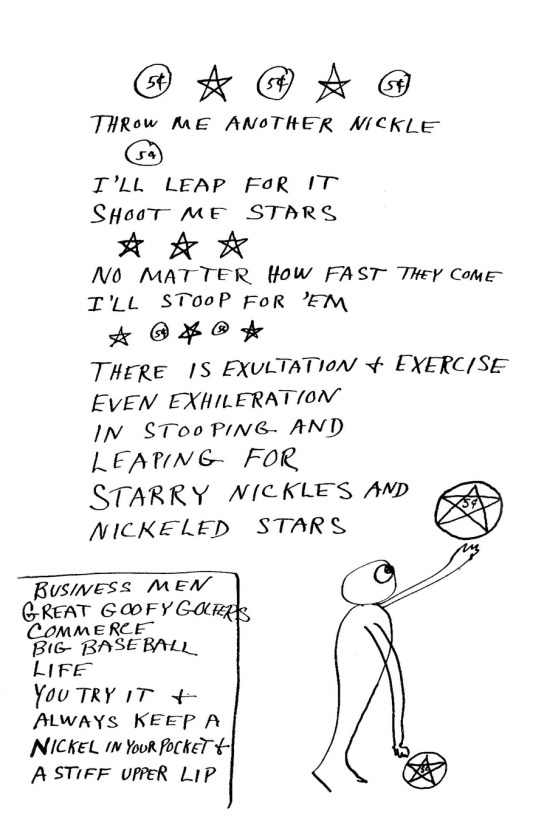 5¢ 5¢ 5¢
THROW ME ANOTHER NICKLE
5¢
I'LL LEAP FOR IT
SHOOT ME STARS
NO MATTER HOW FAST THEY COME
I'LL STOOP FOR 'EM
5¢ 5¢
THERE IS EXULTATION + EXERCISE
EVEN EXHILERATION
IN STOOPING AND
LEAPING FOR
STARRY NICKLES AND
NICKELED STARS
5¢
BUSINESS MEN
GREAT GOOFY GOLFERS
COMMERCE
BIG BASEBALL
LIFE
YOU TRY IT +
ALWAYS KEEP A
NICKEL IN YOUR POCKET +
A STIFF UPPER LIP
5¢